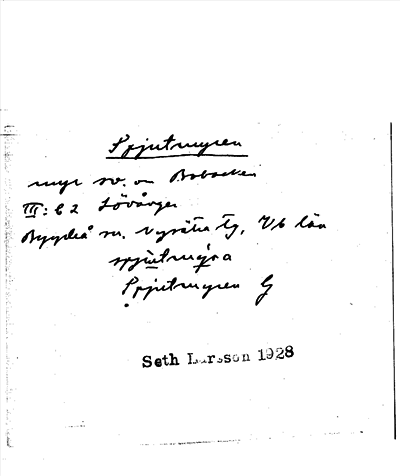 Spjutmyren
myr sv. om Bobacken
III: C 2 Lövånger
Bygdeå sn. Nysätra tg, Vb län
spjutmýra
Spjutmyren G
Seth Larsson 1928